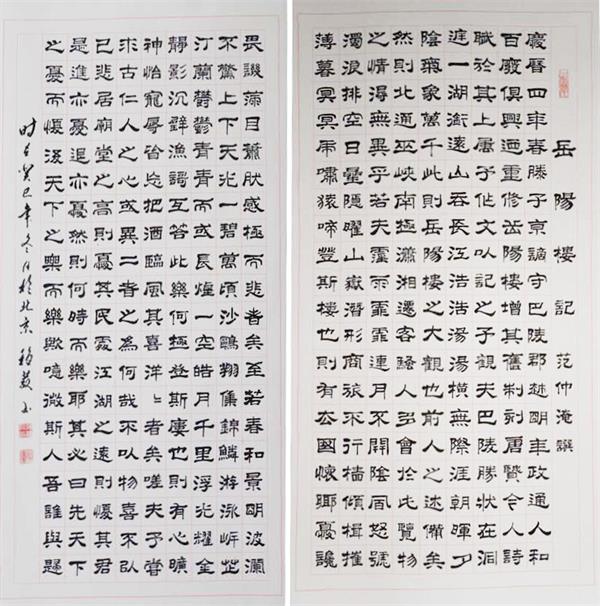 岳陽樓記 范仲淹撰
慶曆四年春滕子京謫守巴陵郡越明年政通人和
百廢俱興迺重修岳陽樓增其舊制刻唐賢今人詩
賦於其上屬予作文以記之予觀夫巴陵勝狀在洞
庭一湖銜遠山吞長江浩浩湯湯橫無際涯朝暉夕
陰氣象萬千此則岳陽樓之大觀也前人之述備矣
然則北通巫峽南極瀟湘遷客騷人多會於此覽物
之情得無異乎若夫霪雨霏霏連月不開陰風怒號
濁浪排空日星隱曜山嶽潛形商旅不行檣傾楫摧
薄暮冥冥虎嘯猿啼登斯樓也則有去國懷鄉憂讒
畏譏滿目蕭然感極而悲者矣至若春和景明波瀾
不驚上下天光一碧萬頃沙鷗翔集錦鱗游泳岸芷
汀蘭鬱鬱青青而或長煙一空皓月千里浮光耀金
靜影沉璧漁謌互答此樂何極登斯樓也則有心曠
神怡寵辱皆忘把酒臨風其喜洋〻者矣嗟夫予嘗
求古仁人之心或異二者之為何哉不以物喜不以
己悲居廟堂之高則憂其民處江湖之遠則憂其君
是進亦憂退亦憂然則何時而樂耶其必曰先天下
之憂而憂後天下之樂而樂歟噫微斯人吾誰與歸
时在癸巳年冬月於北京